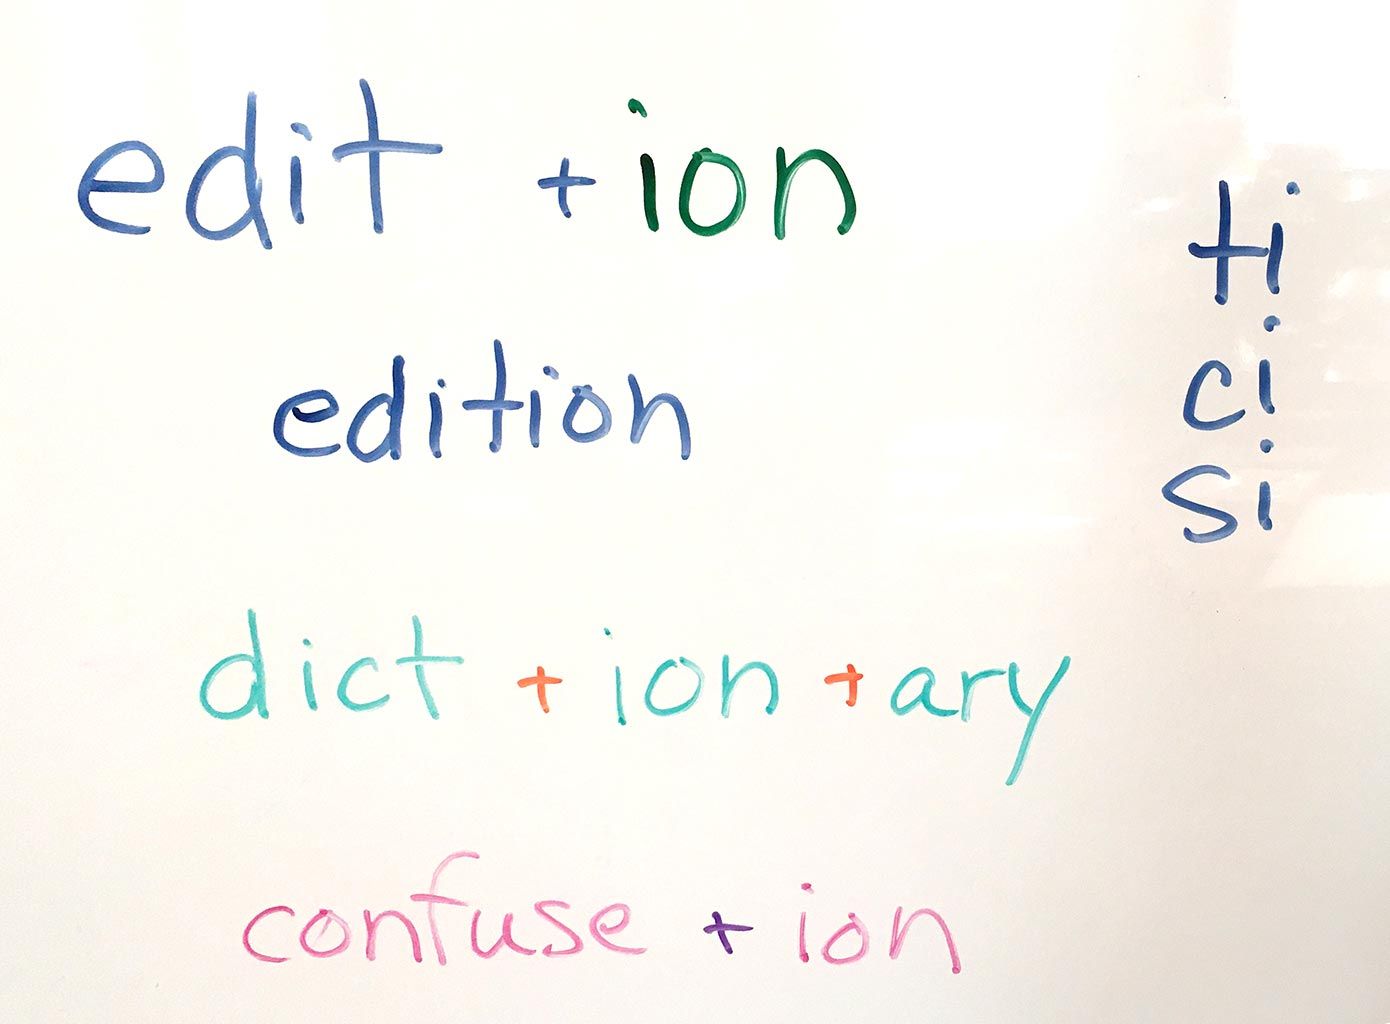 edit + ion
edition
dict + ion + ary
confuse + ion
ti
ci
si